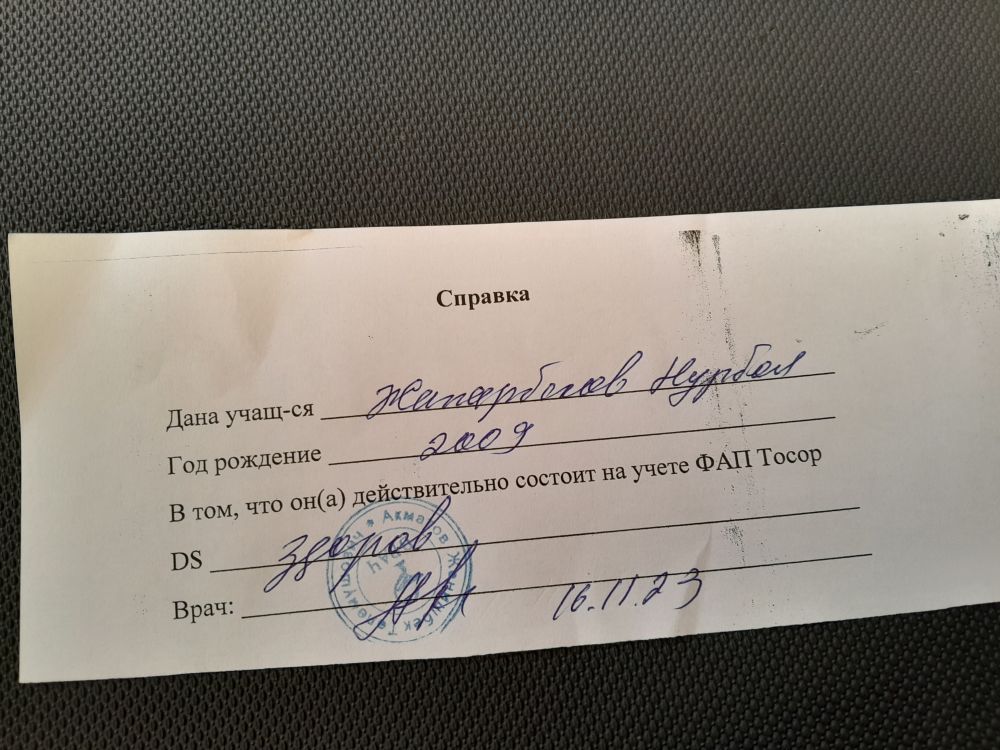 Справка
Дана учащ-ся Жапарбеков Нурбол
Год рождение 2009
В том, что он(а) действительно состоит на учете ФАП Тосор
DS здоров
Врач: 16.11.23
Акматов